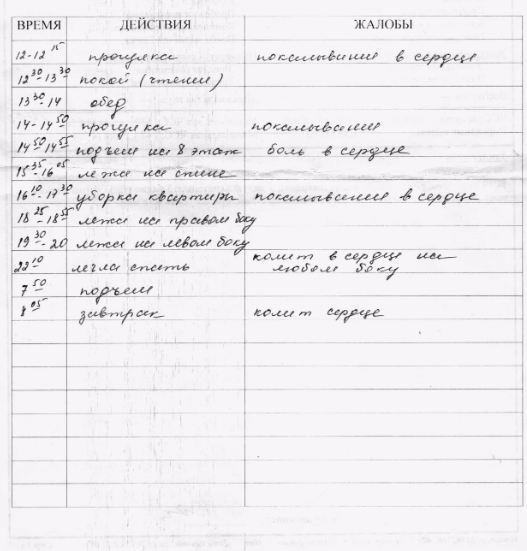 ВРЕМЯ ДЕЙСТВИЯ ЖАЛОБЫ
12-12 15 прогулка покалывание в сердце
12 30-13 30 покой (чтение)
13 30-14 обед
14-14 50 прогулка покалывание
14 50 14 55 подъем на 8 этаж боль в сердце
15 35-16 05 лежа на спине
16 10-17 30 уборка квартиры покалывание в сердце
18 25-18 55 лежа на правом боку
19 30-20 лежа на левом боку
22 10 легла спать колит в сердце на любом боку
7 50 подъем
8 05 завтрак колит сердце